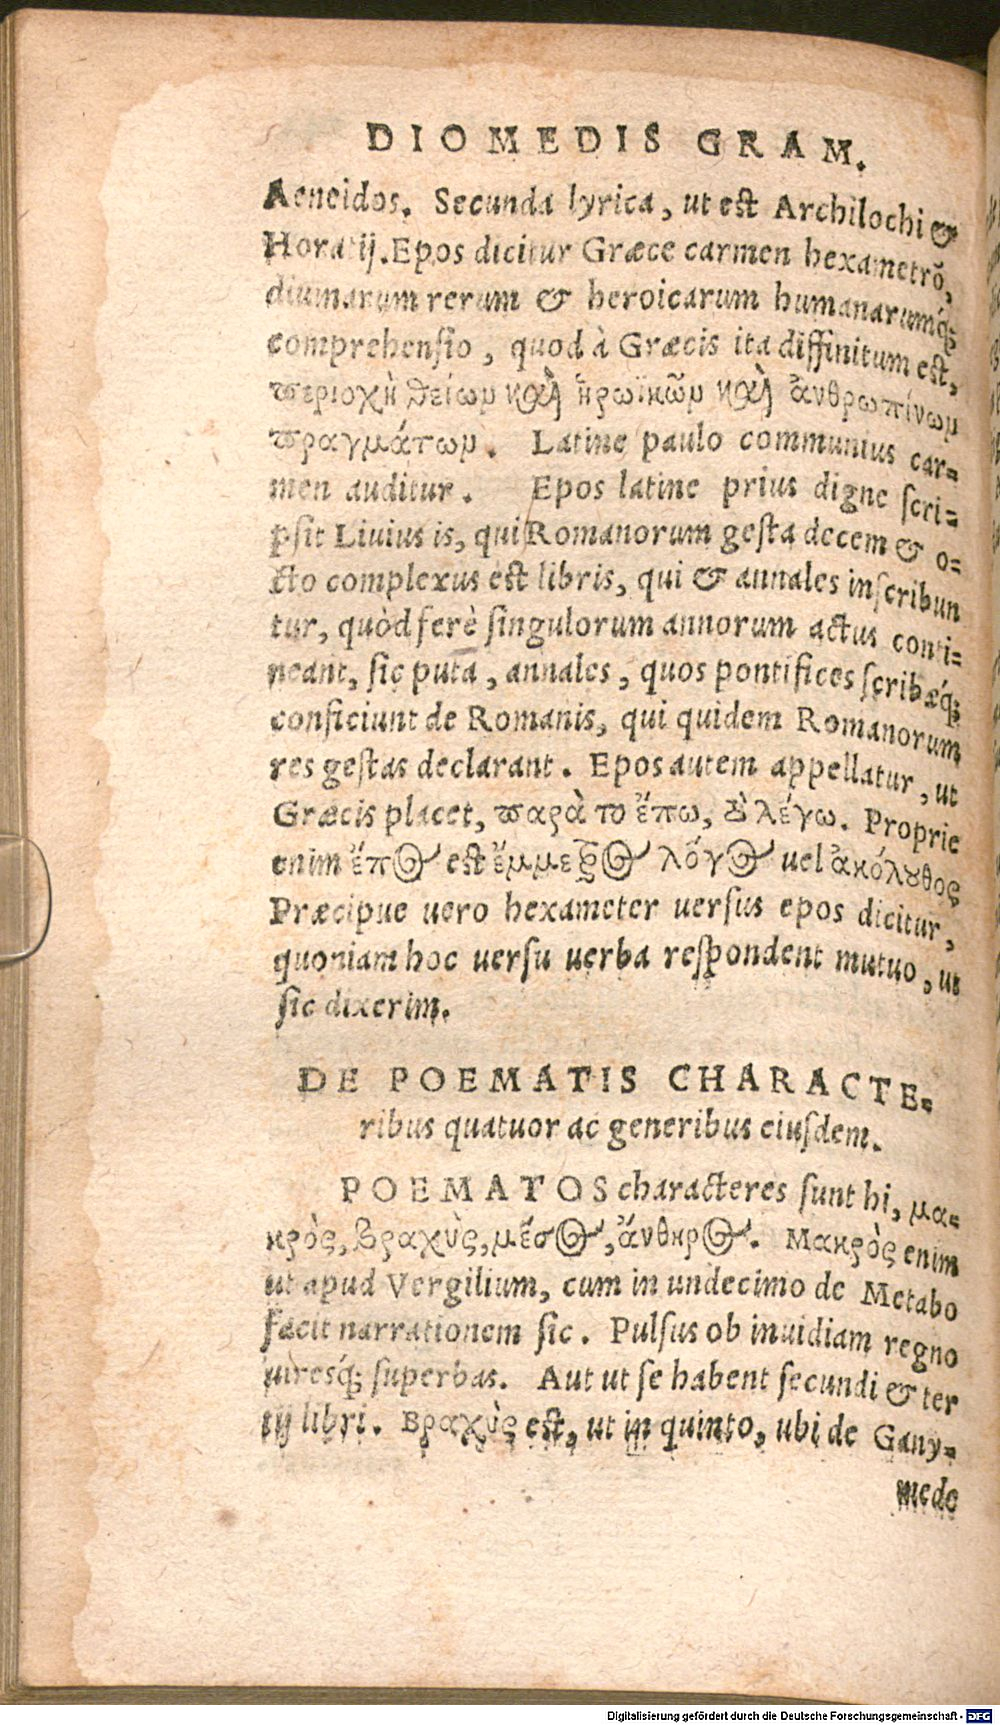 DIOMEDIS GRAM.
Aeneidos. Secunda lyrica, ut est Archilochi &
Horatij. Epos dicitur Græce carmen hexametrõ,
diuinarum rerum & heroicarum humanarumq́;
comprehensio, quod à Græcis ita diffinitum est,
περιοχὴ θείωμ καὶ ἡρωϊκῶμ καὶ ἀνθρωπίνωμ
πραγμάτωμ. Latine paulo communius car-
men auditur. Epos latine prius digne scri-
psit Liuius is, qui Romanorum gesta decem & o-
cto complexus est libris, qui & annales inscribun
tur, quòd ferè singulorum annorum actus conti-
neant, sic puta, annales, quos pontifices scribæq́;
conficiunt de Romanis, qui quidem Romanorum
res gestas declarant. Epos autem appellatur, ut
Græcis placet, παρὰ τὸ ἔπω, τὸ λέγω. Proprie
enim ἔπος est ἔμμετρος λόγος uel ἀκόλουθος
Præcipue uero hexameter uersus epos dicitur,
quoniam hoc uersu uerba respondent mutuo, ut
sic dixerim.
DE POEMATIS CHARACTE-
ribus quatuor ac generibus eiusdem.
POEMATOS characteres sunt hi, μα-
κρὸς, βραχὺς, μέσος, ἄνθηρος. Μακρὸς enim
ut apud Vergilium, cum in undecimo de Metabo
facit narrationem sic. Pulsus ob inuidiam regno
uiresq́; superbas. Aut ut se habent secundi & ter
tij libri. Βραχὺς est, ut in quinto, ubi de Gany-
mede
Digitalisierung gefördert durch die Deutsche Forschungsgemeinschaft - DFG